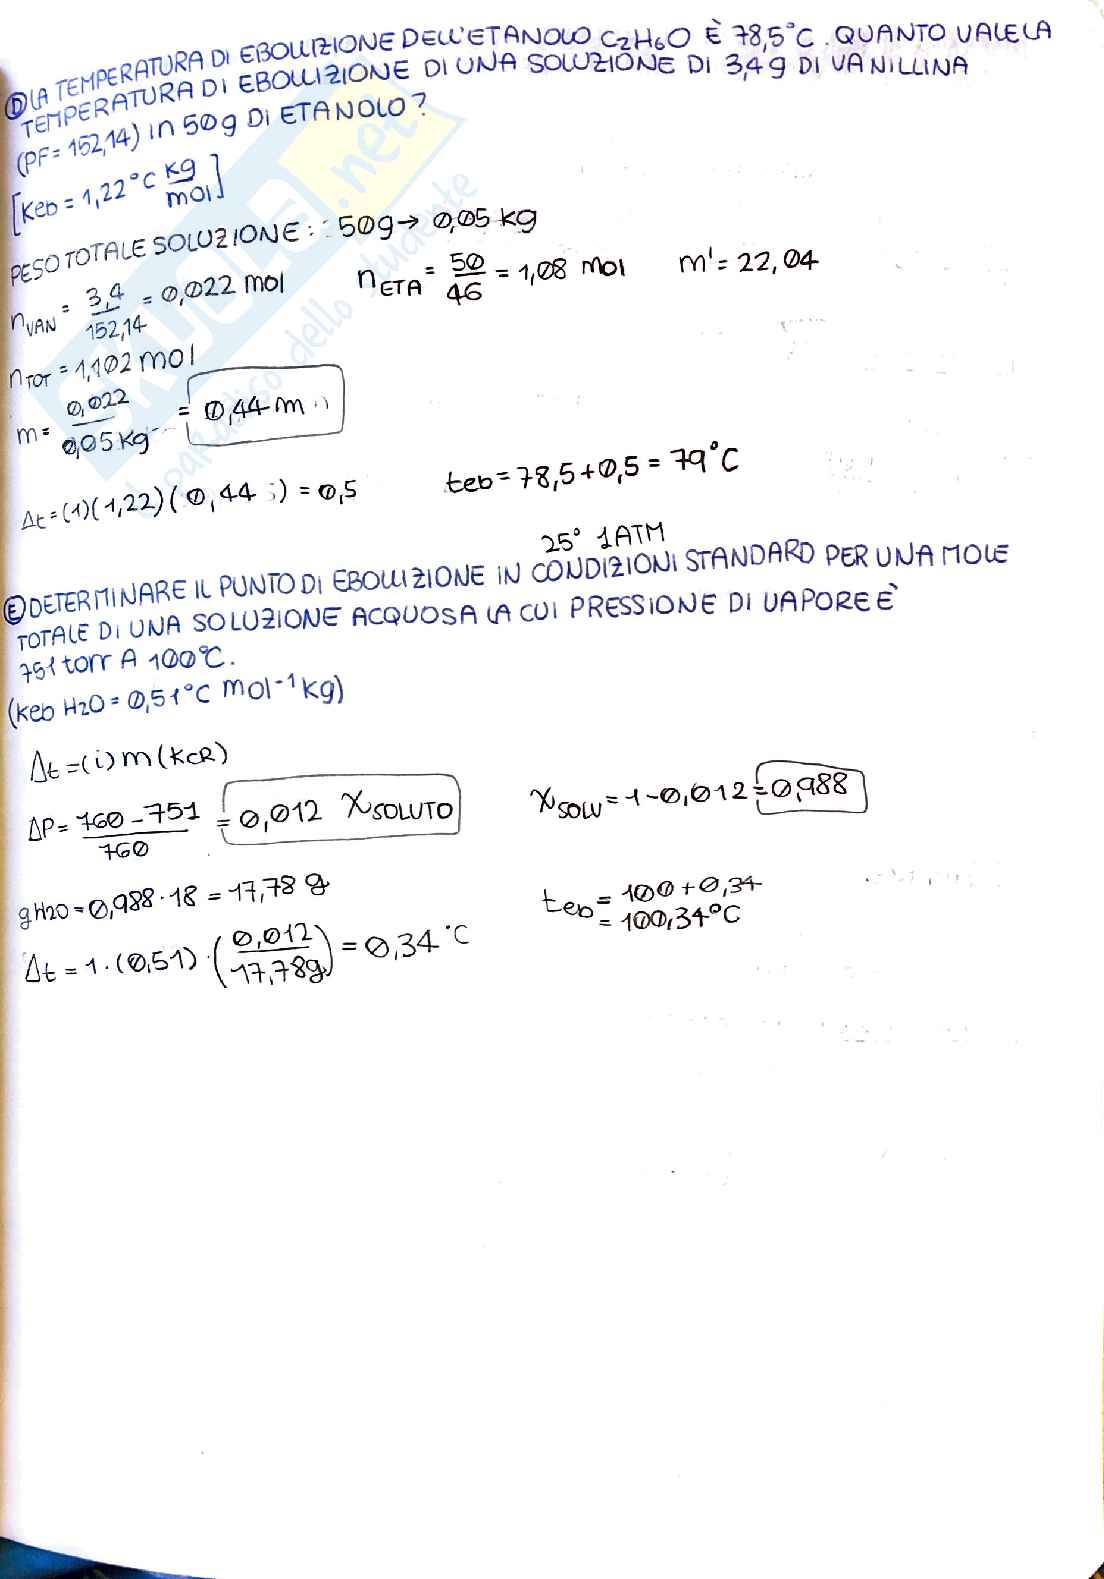 Ⓓ LA TEMPERATURA DI EBOLLIZIONE DELL'ETANOLO C2H6O È 78,5°C. QUANTO VALE LA
TEMPERATURA DI EBOLLIZIONE DI UNA SOLUZIONE DI 3,4g DI VANILLINA
(PF=152,14) in 50g Di ETANOLO?
[Keb = 1,22°C kg/mol]
PESO TOTALE SOLUZIONE: 50g→ 0,05 kg
nVAN = 3,4/152,14 = 0,022 mol nETA = 50/46 = 1,08 mol m' = 22,04
nTOT = 1,102 mol
m = 0,022/0,05 kg = 0,44 m
Δt = (1)(1,22)(0,44) = 0,5 teb = 78,5+0,5 = 79°C
25° 1ATM
Ⓔ DETERMINARE IL PUNTO DI EBOLLIZIONE IN CONDIZIONI STANDARD PER UNA MOLE
TOTALE DI UNA SOLUZIONE ACQUOSA LA CUI PRESSIONE DI VAPORE È
751 torr A 100°C.
(keb H2O = 0,51°C mol-1 kg)
Δt = (i) m (KCR)
ΔP = 760-751/760 = 0,012 XSOLUTO XSOLV = 1-0,012 = 0,988
gH2O = 0,988·18 = 17,78 g
teb = 100+0,34
= 100,34°C
Δt = 1·(0,51)·(0,012/17,78g) = 0,34 °C
SKUOLA.net
il paradiso dello studente